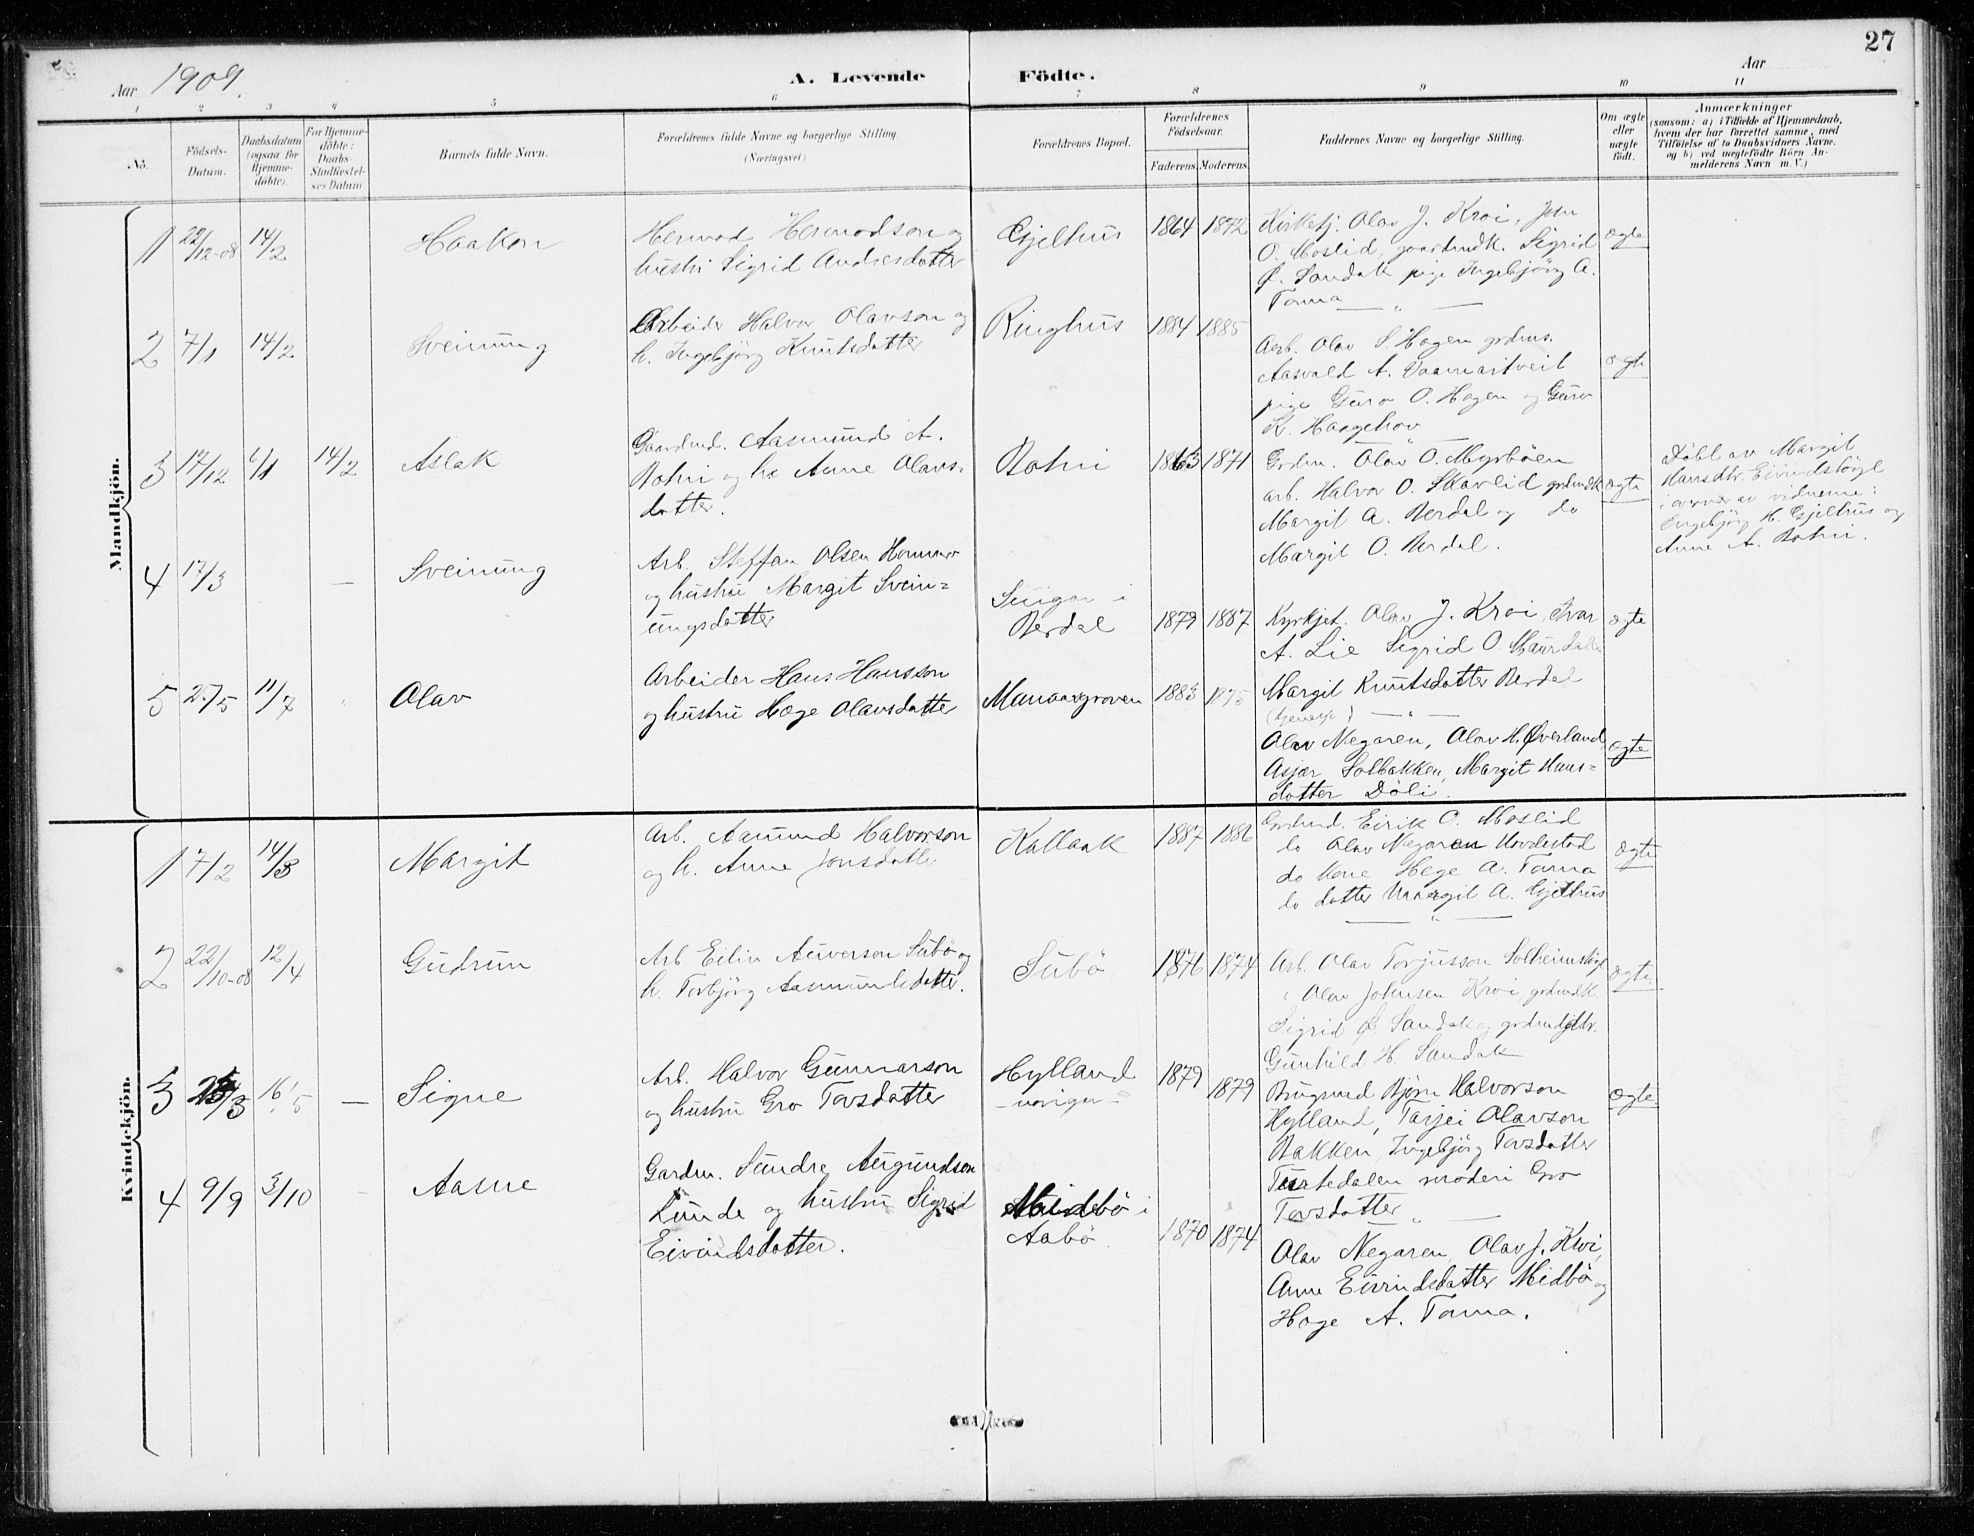 27
Aar 1909.
A. Levende Födte.
Aar
1 2 3 4 5 6 7 8 9 10 11
No.
Födsels-
Datum.
Daabsdatum
(ogsaa for
Hjemme-
döbte).
For Hjemme-
döbte:
Daabs-
Stadfæstel-
ses Datum
Barnets fulde Navn.
Forældrenes fulde Navne og borgerlige Stilling.
(Næringsvei)
Forældrenes Bopæl.
Forældrenes
Födselsaar.
Faderens. Moderens.
Faddernes Navne og borgerlige Stilling.
Om ægte
eller
uægte
födt.
Anmærkninger
(saasom: a) i Tilfælde af Hjemmedaab,
hvem der har forrettet samme, med
Tilföielse af to Daabsvidners Navne.
og b) ved uægtefödte Börn An-
melderens Navn m. V.)
Mandkjön.
1 22/12-08 14/2
Haakon
Hermod Hermodson og
hustru Sigrid Andresdatter
Gjelhus
1864 1872
Kirketj. Olav J. Kroi, John
O. Moslid, gaardmdk. Sigrid
Ø. Sandak pige Ingebjörg A.
Torma
ægte
2 7/1 14/2
Sveinung
Arbeider Halvor Olavson og
h. Ingebjörg Knutsdatter
Ringhus
1884 1885
Arb. Olav S. Hagen grdms.
Aasvald A. Vaamartveit
pige Guro O. Hagen og Guro
K. Haagehov
ægte
3 17/12 6/1 14/2
Aslak
Gaardmd. Aasmund A.
Rohri og h. Anne Olavs-
datter.
Rohri
1863 1871
Grdm. Olav O. Myrböen
arb. Halvor O. Skavlid grdmdk
Margit A. Berdal og do
Margit O. Berdal.
ægte
Döbt av Margit
Hansdtr. Eivindsköyl
i nærvær av vidnerne:
Ingebjörg H. Gjelhus og
Anne A. Rohri.
4 17/3 —
Sveinung
Arb. Steffan Olsen
og hustru Margit Svein-
ungsdatter
i
Berdal
1879 1887
Kyrkjet. Olav J. Kroi, Ivar
A. Lie Sigrid O. Maurdalen
Margit Knutsdatter Berdal
ægte
5 25/5 11/7
Olav
Arbeider Hans Hansson
og hustru Hæge Olavsdatter
Manaargroven
1883 1875
Olav Negaren, Olav H. Øverland,
Asjær Solbakken, Margit Hans-
datter Döli.
ægte
Kvindekjön.
1 7/2 14/3
Margit
Arb. Aamund Halvorson
og h. Anne Jonsdatter
Kallaak
1887 1886
Grdmd. Eirik O. Moslid
do Olav Negaren Hovdestad
do kone Hege A. Torma
do datter Margit A. Gjelhus
ægte
2 22/10-08 12/4
Gudrun
Arb. Eiliv Auverson Sübö og
h. Torbjörg Aasmundsdatter.
Sübö
1876 1874
Arb. Olav Torjusson Solheimsköyl
" Olav Johnsen Kroi grdmdk
Sigrid Ø. Sandak og grdmdsdtr.
Gunhild H. Sandak
ægte
3 25/3 16/5 —
Signe
Arb. Halvor Gunnarson
og hustru Gro Tovsdatter
Hylland
1879 1879
Brugsmd Björn Halvorson
Hylland, Tarjei Olavson
Bakken, Ingebjörg Tovsdatter
Turtedalen moderen Gro
Tovsdatter
ægte
4 9/9 3/10
Aasne
Gardm. Sundre Augundson
Lunde og hustru Sigrid
Eivindsdatter.
Midbö i
Aabö
1870 1874
Olav Negaren, Olav J. Kroi,
Anne Eivindsdatter Midbö og
Hæge A. Torma.